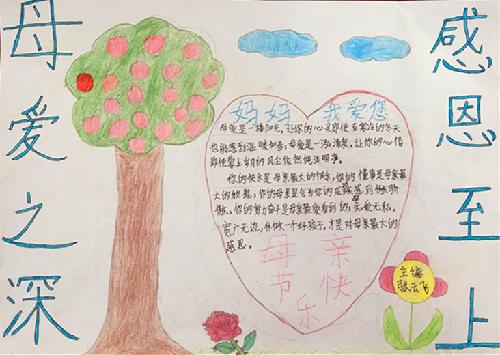 母爱之深
感恩至上
妈妈 我爱您
母爱是一缕阳光,让你的心灵即使在寒冷的冬天
也能感到温暖如春;母爱是一泓清泉,让你的心情
即使蒙上岁月的风尘依然纯洁明净。
你的快乐是母亲最大的快乐,你的懂事是母亲最
大的欣慰,你的母亲是会为你的成就感到快乐骄
傲,你的努力命令是母亲最爱看到的;关爱无私,
宽广无边,你做一个好孩子,才是对母亲最大的
感恩。
母亲
节快
乐
主编
张云飞